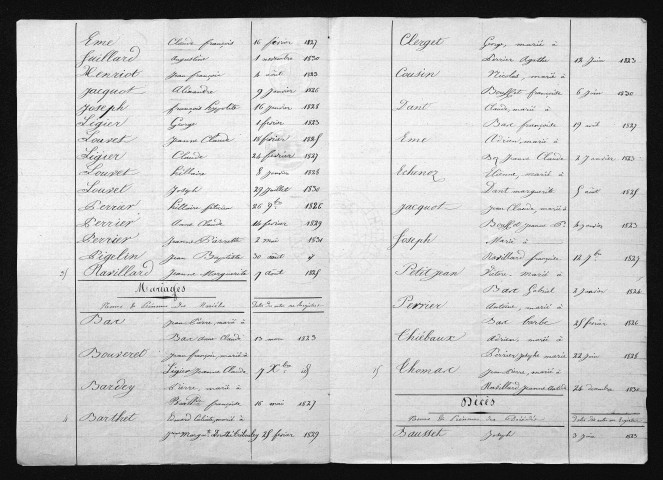 Eme Claude françois 16 février 1827
Gaillard Augustine 1 novembre 1830
Henriot Jean françois 4 août 1823
Jacquot Alexandre 9 Janvier 1826
Joseph françois hippolite 16 Janvier 1828
Ligier George 1 février 1823
Louvet Jeanne Claude 18 février 1825
Ligier Claude 24 février 1827
Louvet hillaire 8 Janvier 1828
Louvet Joseph 29 Juillet 1830
Perrier hillaire 26 9bre 1826
Perrier Anne Claude 14 février 1829
Perrier Jeanne Pierrette 2 mai 1830
Pigelin Jean Baptiste 30 août
Ravillard Jeanne Marguerite 9 août 1825
Mariages
Noms & Prénoms des Mariés
Date des actes au Registre
Bax Jean Pierre, marié à
Bax Anne Claude 13 mars 1823
Bouveret Jean françois, marié à
Ligier Jeanne Claude 7 Xbre
Bardey Pierre, marié à
françoise 16 mai 1827
4 Barthet marié à
25 février 1829
Clerget George, marié à
Perrier Agathe 12 Juin 1823
Cousin Nicolas, marié à
françoise 6 Juin 1830
Dant Claude, marié à
Bax françoise 19 août 1827
Eme Adrien, marié à
Bey Jeanne Claude 2 Janvier 1823
Echenoz Etienne, marié à
Dant marguerite 5 août 1825
Jacquot Jean Claude, marié à
Jeanne 4 Janvier 1823
Joseph Marie à
Ravillard françoise 12 9bre 1827
Petit jean Victor, marié à
Bax 2 Janvier 1824
Perrier Antoine, marié à
Bax Barbe 25 février 1826
Thiébaux Adrien, marié à
Perrier marie 22 Juin 1828
15 Thomax Jean Pierre, marié à
Ravillard Jeanne 24 décembre 1830
Décès
Noms & Prénoms des Décédés
Date des actes au Registre
Bausset Joseph 3 Juin 1823